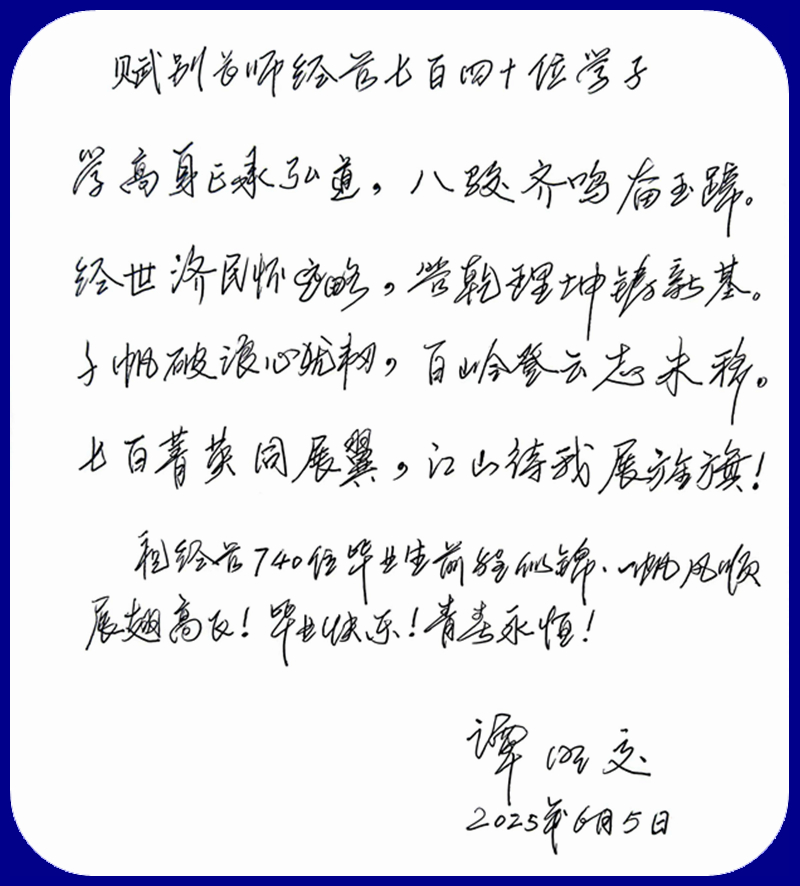 赋别首师经管七百四十位学子
学高身正承弘道，八骏齐鸣奋玉蹄。
经世济民怀宏略，营乾理坤铸新基。
千帆破浪心犹韧，百岭登云志未移。
七百菁英同展翼，江山待我展旌旗！
祝经管740位毕业生前程似锦、一帆风顺
展翅高飞！毕业快乐！青春永恒！
谭
2025年6月5日